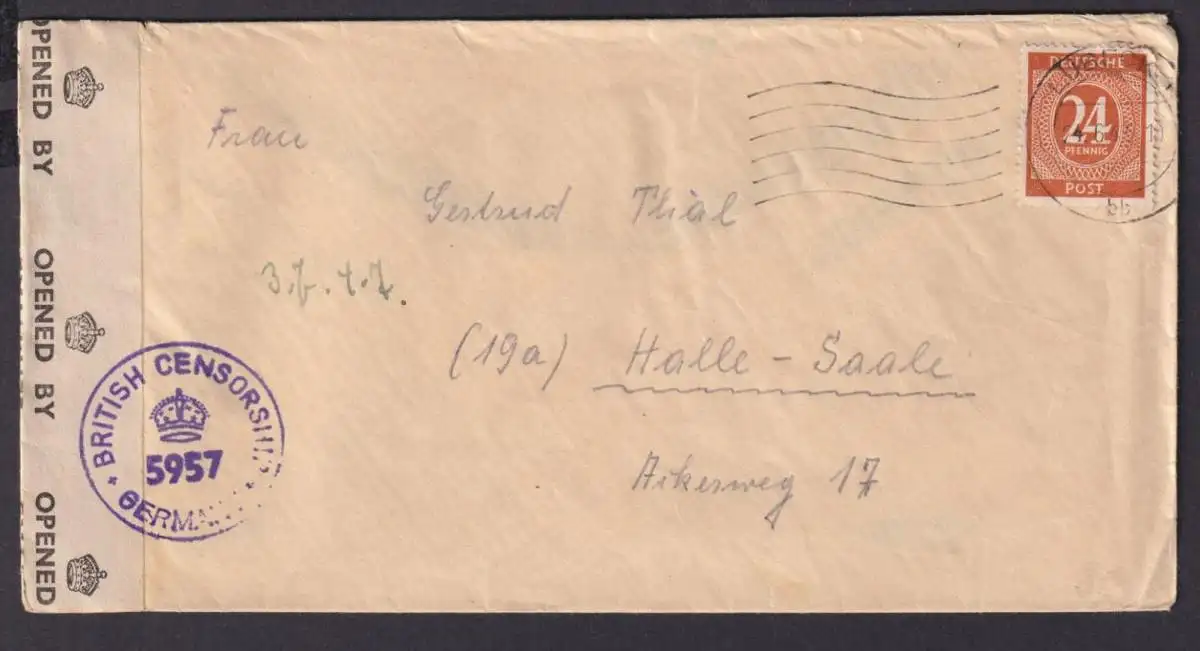 OPENED BY
OPENED BY
OPENED
DEUTSCHE
24
PFENNIG
POST
bb
Frau
Gertrud Thial
(19a) Halle - Saale
17
BRITISH CENSORSHIP
5957
GERMANY